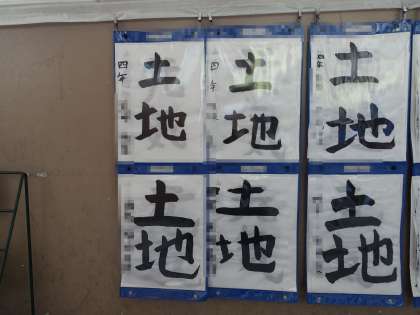 土地
四年
土地
四年
土地
四年
土地
土地
土地